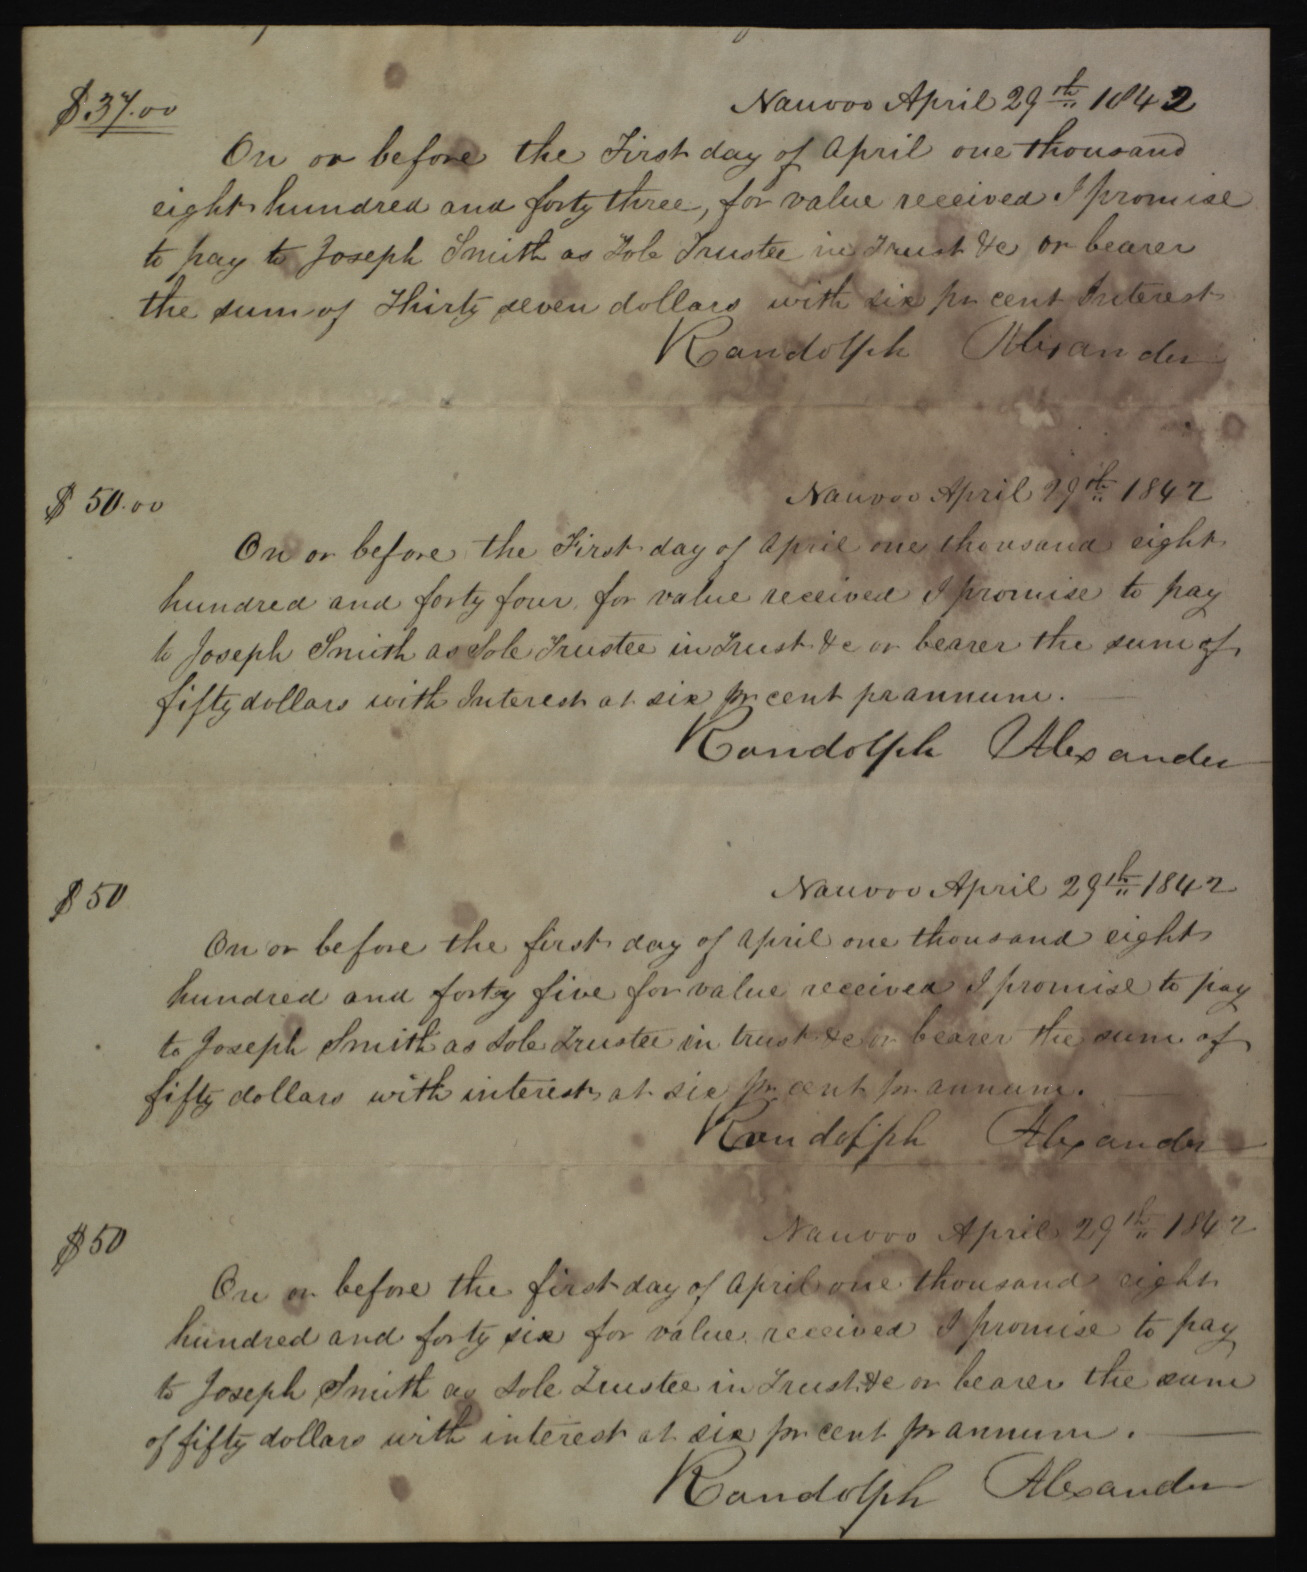 $37.00
Nauvoo April 29th 1842
On or before the First day of April one thousand
eight hundred and forty three, for value received I promise
to pay to Joseph Smith as Sole Trustee in Trust &c or bearer
the sum of Thirty seven dollars with six pr cent Interest
Randolph Alexander
$50.00
Nauvoo April 29th 1842
On or before the First day of April one thousand eight
hundred and forty four, for value received I promise to pay
to Joseph Smith as Sole Trustee in Trust &c or bearer the sum of
fifty dollars with Interest at six pr cent pr annum.
Randolph Alexander
$50
Nauvoo April 29th 1842
On or before the first day of April one thousand eight
hundred and forty five for value received I promise to pay
to Joseph Smith as Sole Trustee in trust &c or bearer the sum of
fifty dollars with interest at six pr cent pr annum.
Randolph Alexander
$50
Nauvoo April 29th 1842
On or before the first day of April one thousand eight
hundred and forty six for value received I promise to pay
to Joseph Smith as Sole Trustee in Trust &c or bearer the sum
of fifty dollars with interest at six pr cent pr annum.
Randolph Alexander